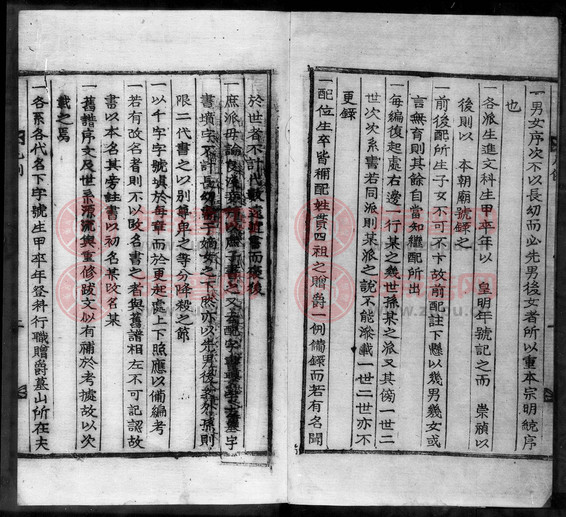 一男女序次不以長幼而必先男後女者所以重本宗明統序
也
一各派生進文科生甲卒年以 皇明年號記之而 崇禎以
後則以 本朝廟號錄之
前後配所生子女不可不卞故前配註下懸以幾男幾女或
言無育則其餘自當知繼配所出
一每編復起處右邊一行某之幾世孫某之派又其傍一世二
世次次系書若同派則某派之說不能滲載一世二世亦不
更錄
一配位生卒皆稱配姓貫四祖之贈爵一例備錄而若有名聞
於世者不計代數 書而 後
一庶派毋論 書之又
書墳字不計 子嫡女之下 亦以先男後 孫則
限二代書之以別尊卑之等分降殺之節
一以千字字號填於每章而於更起處上下照應以備編考
一若有改名者則不以改名書之者與舊譜相左不可記認故
書以本名其旁註書以初名某改名某
一舊譜序文及世系源流與重修跋文似有補於考據故以次
載之焉
一各系各代名下字號生甲卒年登科行職贈爵墓山所在夫